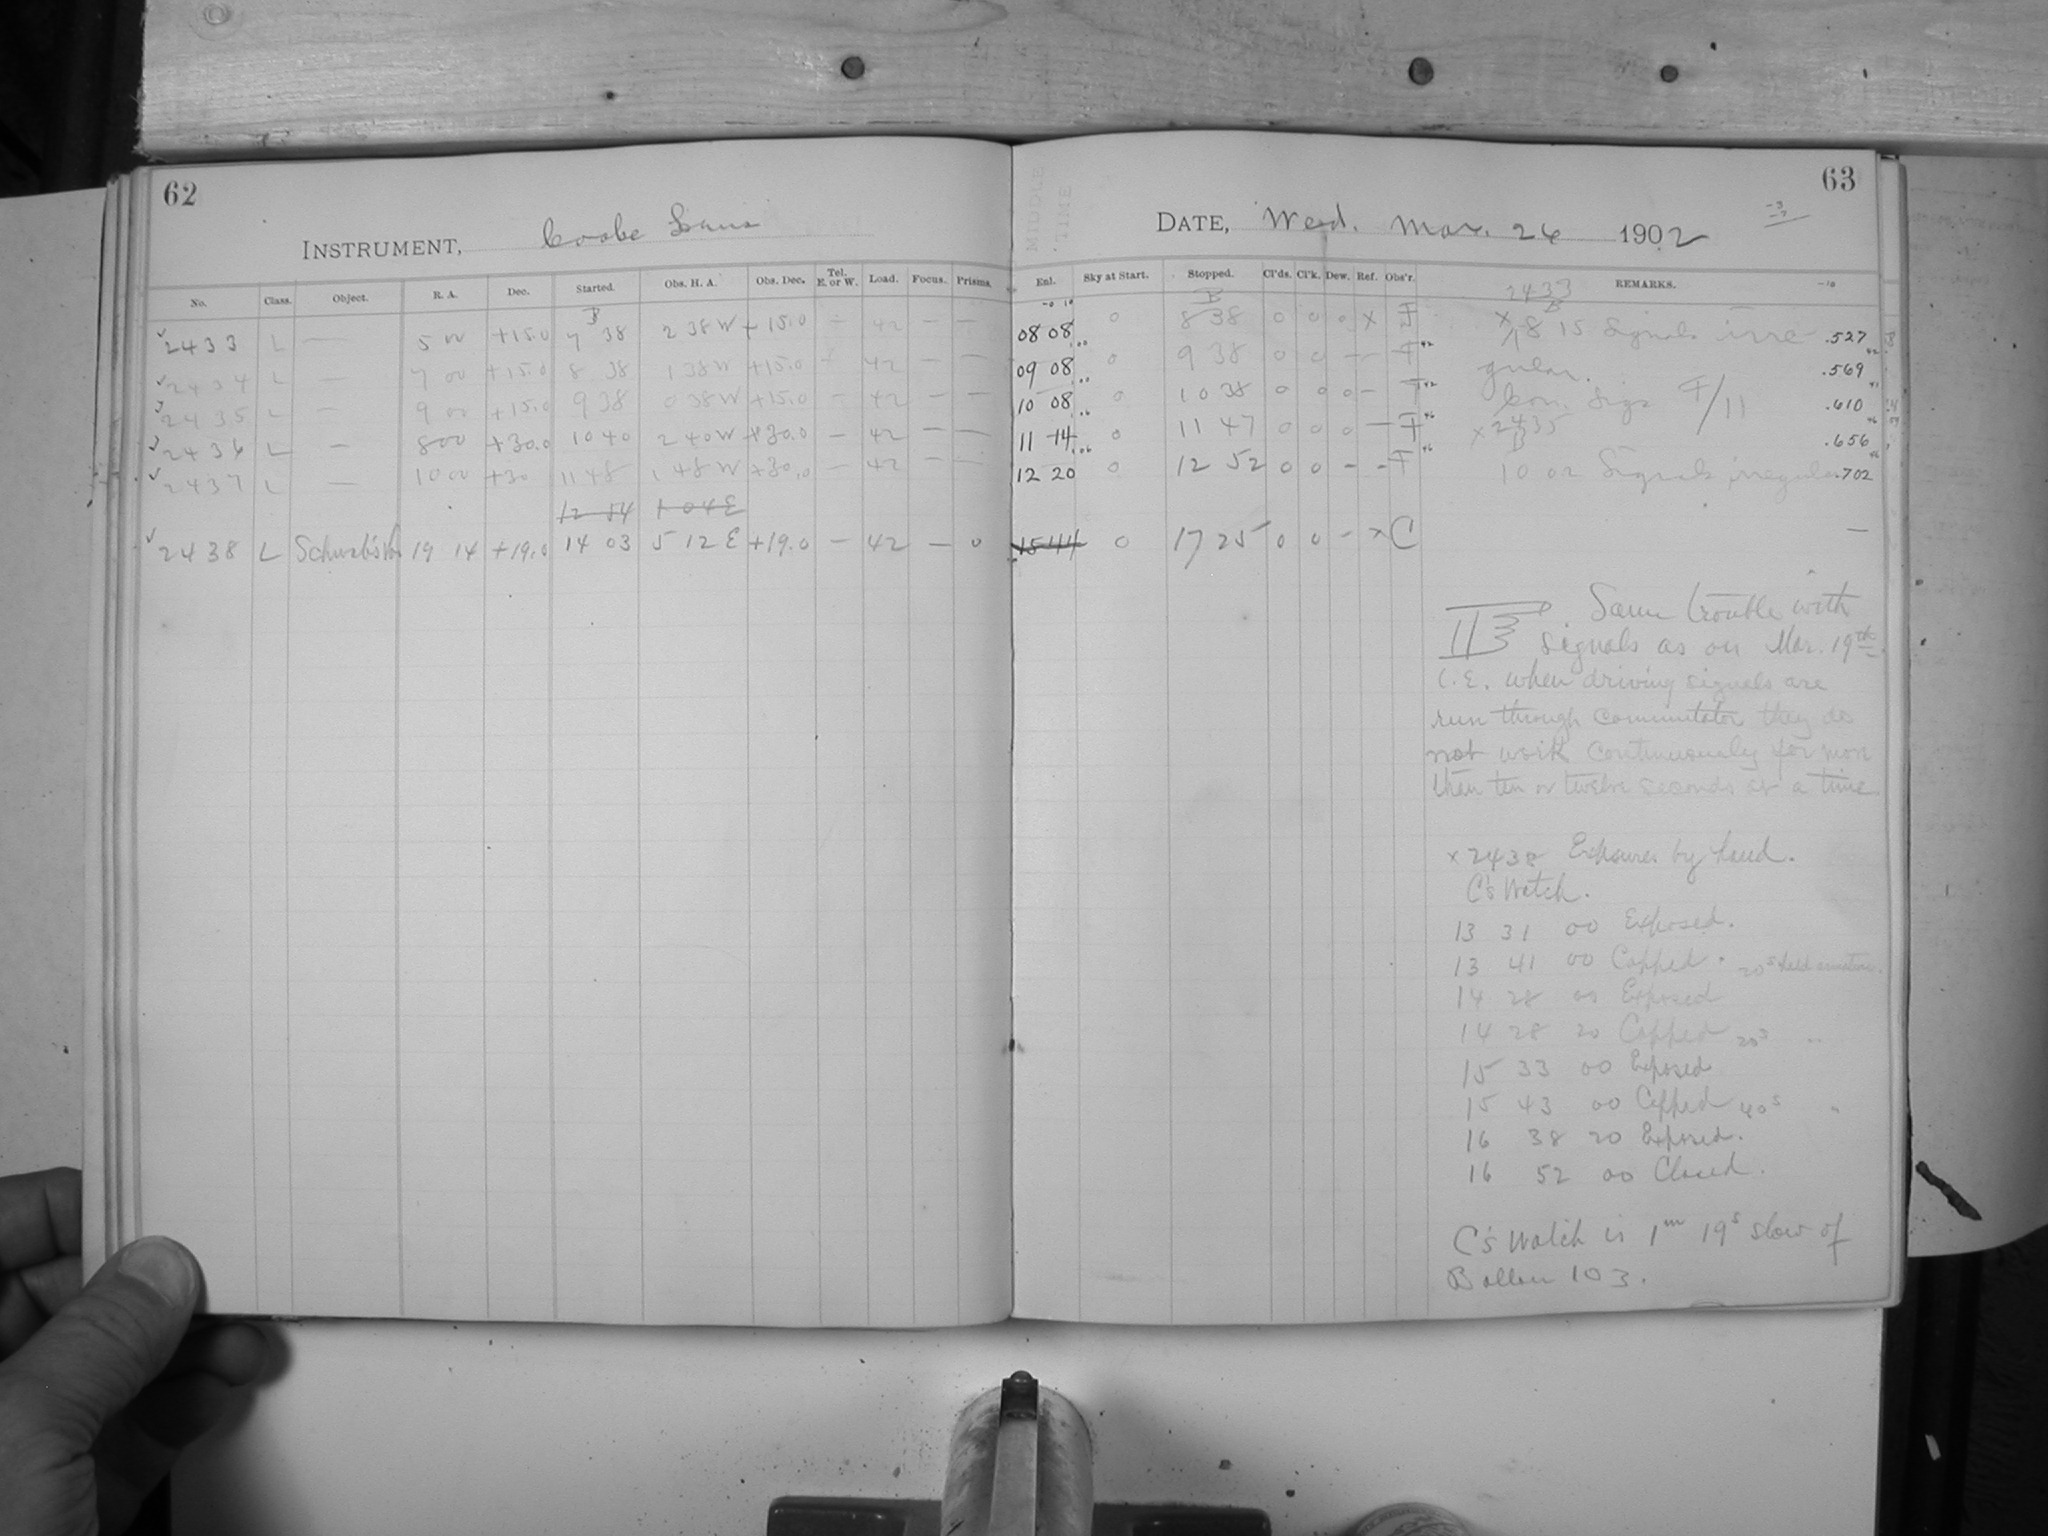 62
INSTRUMENT, Cooke Lens
No. Class. Object. R. A. Dec. Started. Obs. H. A. Obs. Dec. Tel. E. or W. Load. Focus. Prisms.
B
2433 L — 5 00 +15.0 7 38 2 38 W +15.0 — 42 — —
2434 L — 7 00 +15.0 8 38 1 38 W +15.0 42 — —
2435 L — 9 00 +15.0 9 38 0 38 W +15.0 — 42 — —
2436 L — 8 00 +30.0 10 40 2 40 W +30.0 — 42 — —
2437 L — 10 00 +30 11 48 1 48 W +30.0 — 42 — —
12 54 1 04 E
2438 L 19 14 +19.0 14 03 5 12 E +19.0 — 42 — 0
MIDDLE TIME
63
DATE, Wed. Mar. 26 1902
Enl. Sky at Start. Stopped. Cl'ds. Cl'k. Dew. Ref. Obs'r. REMARKS.
B
08 08 0 8 38 0 0 0 x F
09 08 0 9 38 0 0 — — F
10 08 0 10 38 0 0 0 — F
11 14 0 11 47 0 0 0 — F
12 20 0 12 52 0 0 — — F
15 44 0 17 25 0 0 — x C
2433
B
x 18 15 Signals irre .527
gular. .569
Con. Sigs F/11 .610
x 2435 .656
B
10 02 Signals irregular .702
—
Same trouble with
signals as on Mar. 19th
i.e. when driving signals are
run through commutator they do
not work continuously for more
than ten or twelve seconds at a time
x 2438 Exposures by hand.
C's Watch.
13 31 00 Exposed.
13 41 00 Capped. 20s held armature.
14 28 00 Exposed
14 28 20 Capped 20s "
15 33 00 Exposed
15 43 00 Capped 40s "
16 38 20 Exposed.
16 52 00 Closed.
C's Watch is 1m 19s slow of
Ballou 103.